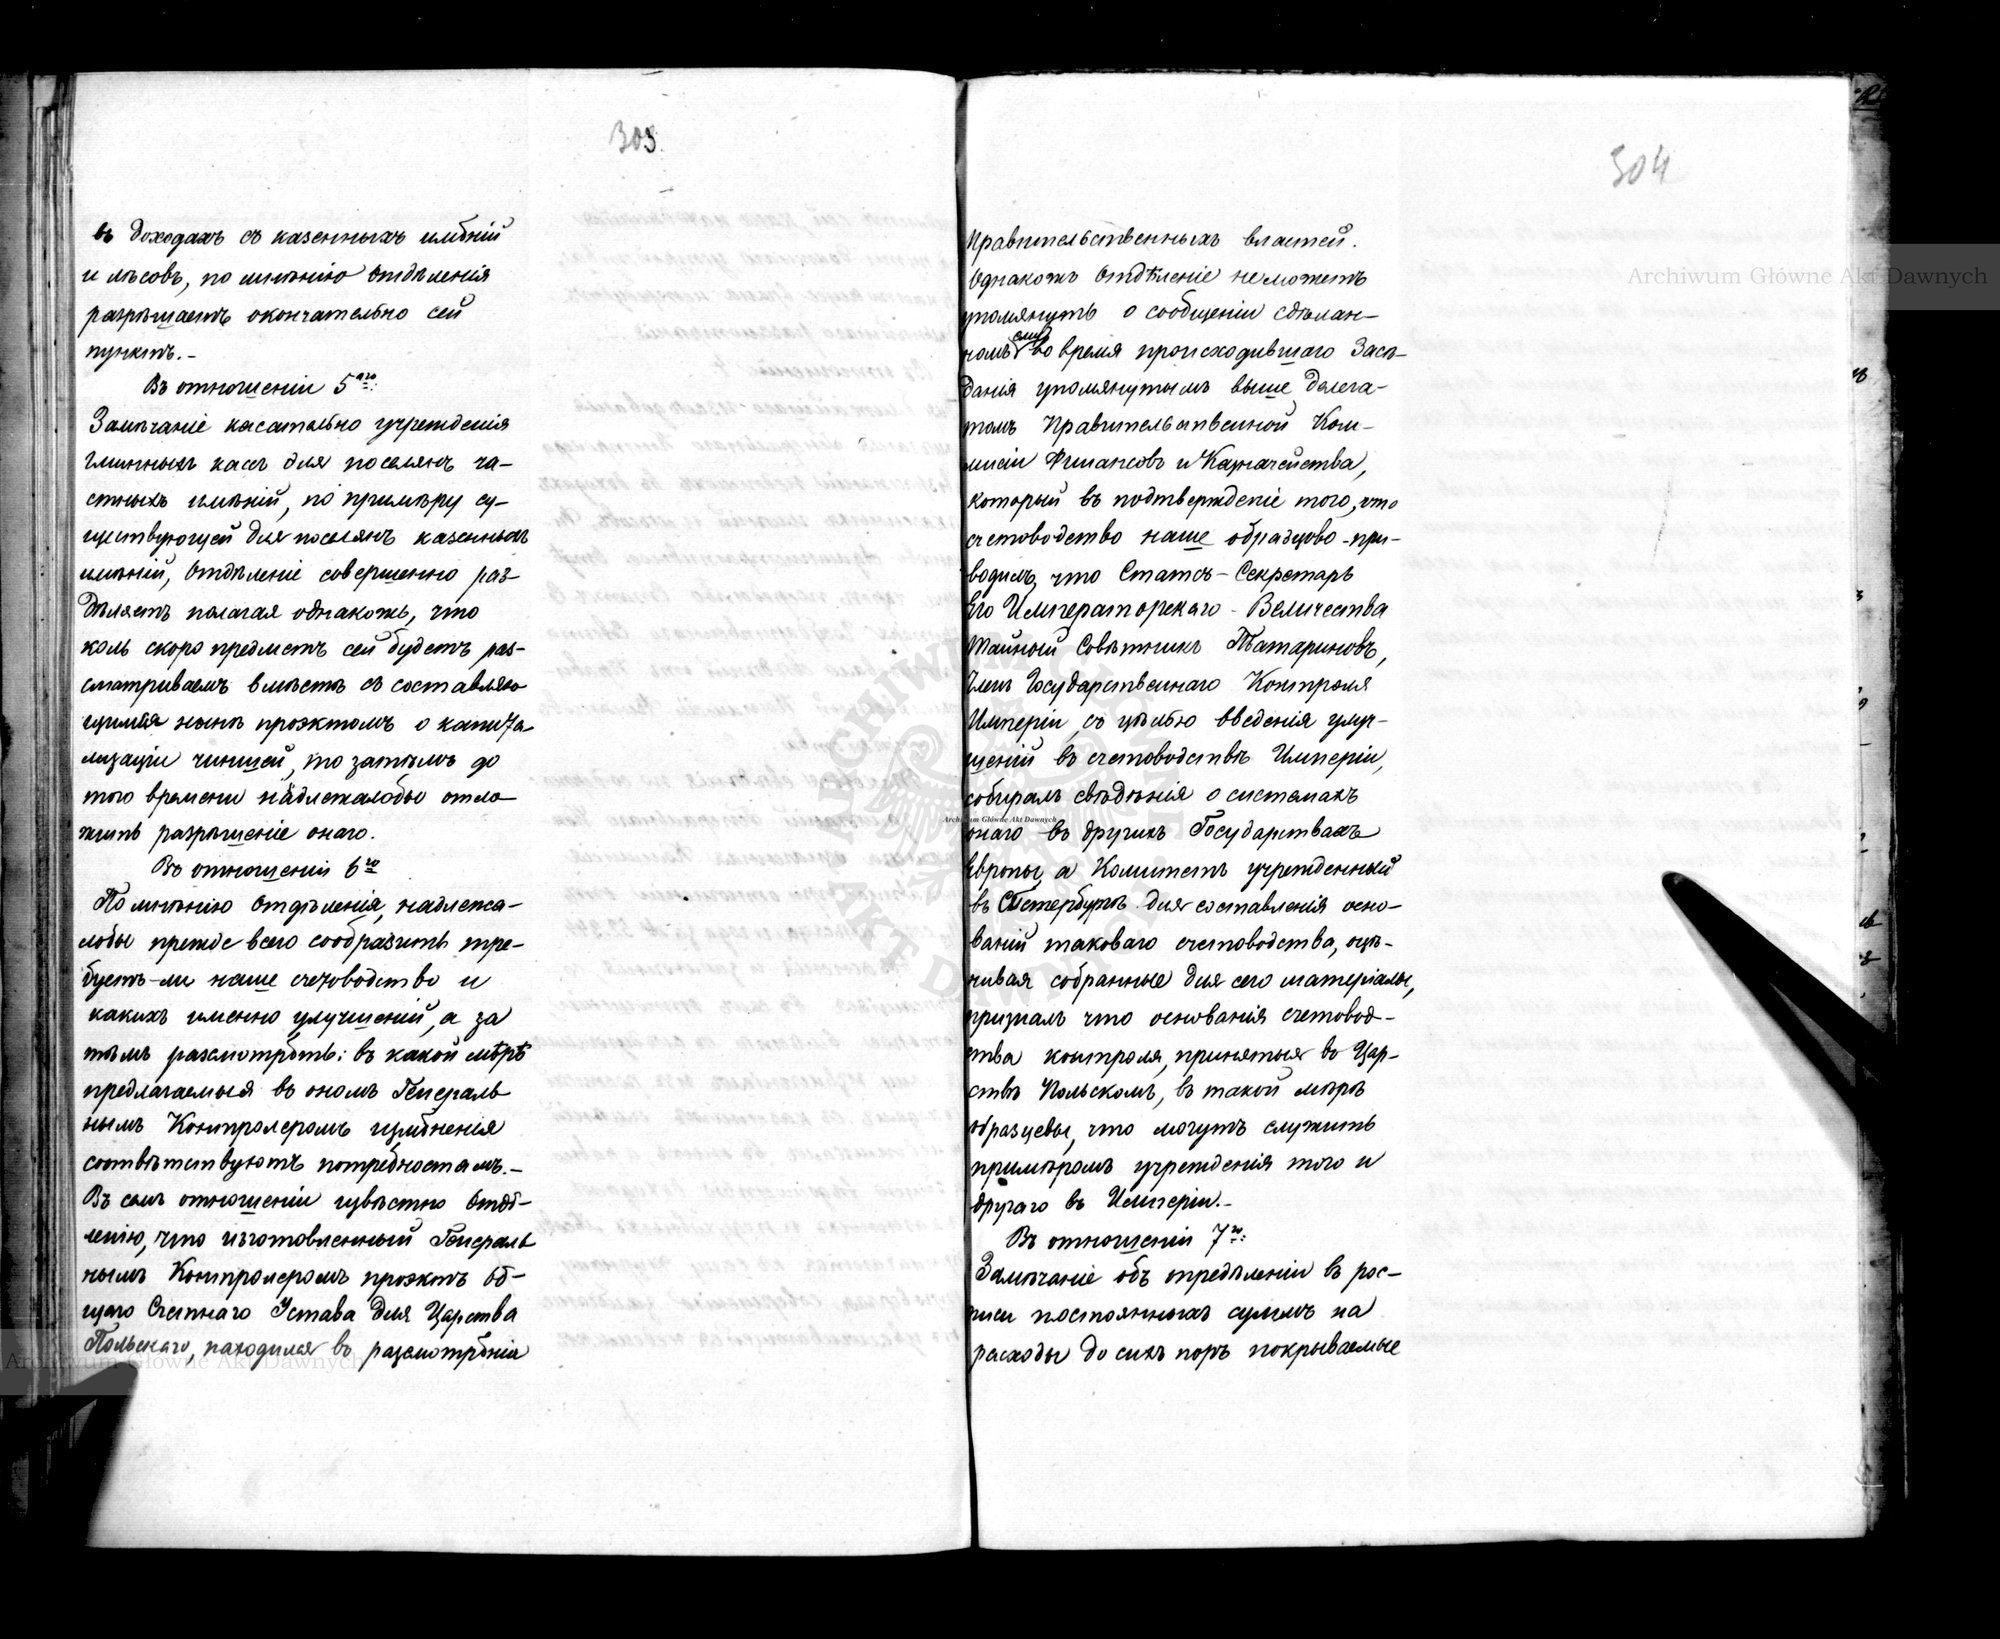 303.
въ доходахъ съ казенныхъ имѣній
и лѣсовъ, по мнѣнію Отдѣленія
разрѣшаетъ окончательно сей
пунктъ.-
Въ отношеніи 5аго:
Замѣчаніе касательно учрежденія
Гминныхъ кассъ для поселянъ ча-
стныхъ имѣній, по примѣру су-
ществующей для поселянъ казенныхъ
имѣній, Отдѣленіе совершенно раз-
дѣляетъ полагая однакожъ, что
коль скоро предметъ сей будетъ раз-
сматриваемъ вмѣстѣ съ составляю-
щимся нынѣ проэктомъ о капита-
лизаціи чиншей, то затѣмъ до
того времени надлежалобы отло-
жить разрѣшеніе онаго.
Въ отношеніи 6го
По мнѣнію Отдѣленія, надлежа-
лобы прежде всего сообразить тре-
буетъ-ли наше счетоводство и
какихъ именно улучшеній, а за
тѣмъ разсмотрѣть: въ какой мѣрѣ
предлагаемыя въ ономъ Генераль
нымъ Контролеромъ измѣненія
соотвѣтствуютъ потребностямъ.-
Въ семъ отношеніи извѣстно Отдѣ-
ленію, что изготовленный Генераль
нымъ Контролеромъ проэктъ Об-
щаго Счетнаго Устава для Царства
Польскаго, находился въ разсмотрѣніи
304
Правительственныхъ властей.
Однакожъ Отдѣленіе неможетъ
упомянуть о сообщеніи сдѣлан-
номъ ему во время происходившаго Засѣ-
данія упомянутымъ выше Делега-
томъ Правительственной Ком-
мисіи Финансовъ и Казначейства,
который въ подтвержденіе того, что
счетоводство наше образцово-при-
водилъ, что Статсъ-Секретарь
Его Императорскаго-Величества
Тайный Совѣтникъ Татариновъ,
Членъ Государственнаго Контроля
Имперіи, съ цѣлью введенія улуч-
шеній въ счетоводствѣ Имперіи,
собиралъ свѣдѣнія о системахъ
онаго въ другихъ Государствахъ
Европы, а Комитетъ учрежденный
въ СПетербургѣ для составленія осно-
ваній таковаго счетоводства, оцѣ-
нивая собранные для сего матеріалы,
призналъ что основанія счетовод-
ства контроля, принятыя въ Цар-
ствѣ Польскомъ, въ такой мѣрѣ
образцевы, что могутъ служить
примѣромъ учрежденія того и
другаго въ Имперіи.-
Въ отношеніи 7го:
Замѣчаніе объ опредѣленіи въ рос-
писи постоянныхъ суммъ на
расходы до сихъ поръ покрываемые
Archiwum Główne Akt Dawnych
Archiwum Główne Akt Dawnych
Archiwum Główne Akt Dawnych
ARCHIWUM GŁÓWNE AKT DAWNYCH